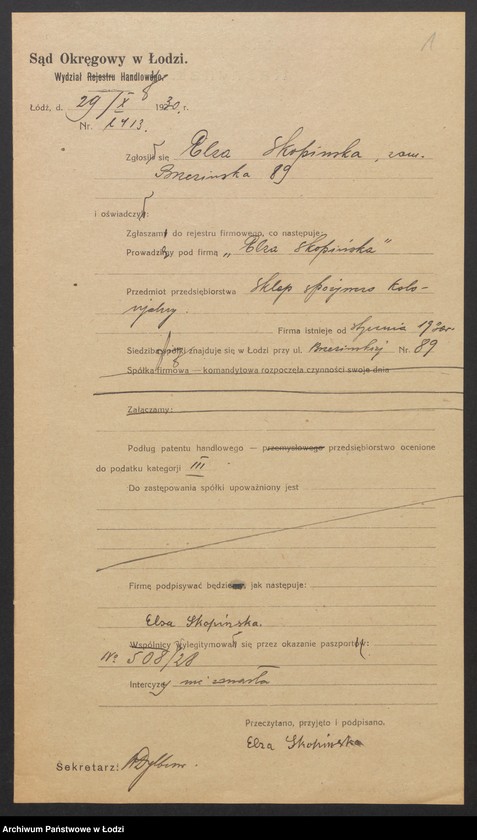 1
Sąd Okręgowy w Łodzi.
Wydział Rejestru Handlowego
Łódź, d. 29/X 1930 r.
Nr. 2413.
Zgłosił się Elza Skopinska, zam.
Brzezinska 89
i oświadczył:
Zgłaszam do rejestru firmowego, co następuje:
Prowadzimy pod firmą „Elza Skopińska"
Przedmiot przedsiębiorstwa Sklep spożywczo kolo-
njalny.
Firma istnieje od stycznia 1930r
Siedziba spółki znajduje się w Łodzi przy ul. Brzezińskiej Nr. 89
Spółka firmowa — komandytowa rozpoczęła czynności swoje dnia
Załączamy:
Podług patentu handlowego — przemysłowego przedsiębiorstwo ocenione
do podatku kategorji III
Do zastępowania spółki upoważniony jest
Firmę podpisywać będzie jak następuje:
Elza Skopińska.
Wspólnicy wylegitymował się przez okazanie paszportu:
No 508/28
Intercyzy nie zawarła
Przeczytano, przyjęto i podpisano.
Elza Skopińska
Sekretarz:
Archiwum Państwowe w Łodzi